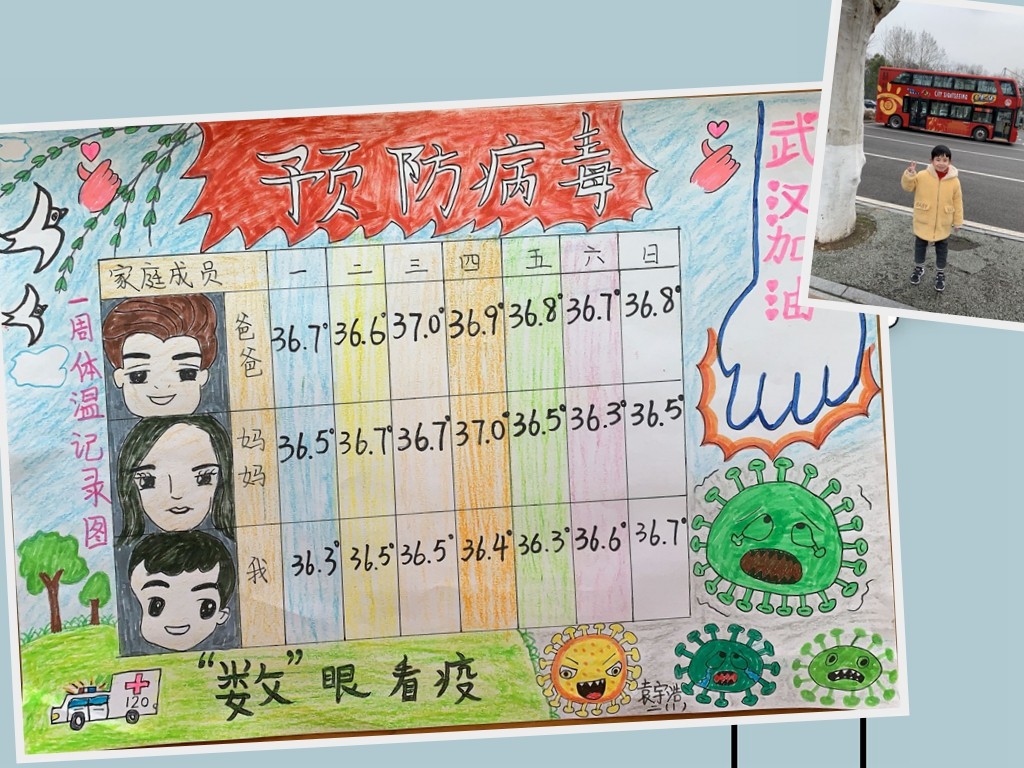 预防病毒
武汉加油
一周体温记录图
家庭成员 一 二 三 四 五 六 日
爸爸 36.7° 36.6° 37.0° 36.9° 36.8° 36.7° 36.8°
妈妈 36.5° 36.7° 36.7° 37.0° 36.5° 36.3° 36.5°
我 36.3° 36.5° 36.5° 36.4° 36.3° 36.6° 36.7°
“数”眼看疫
120
袁宇浩